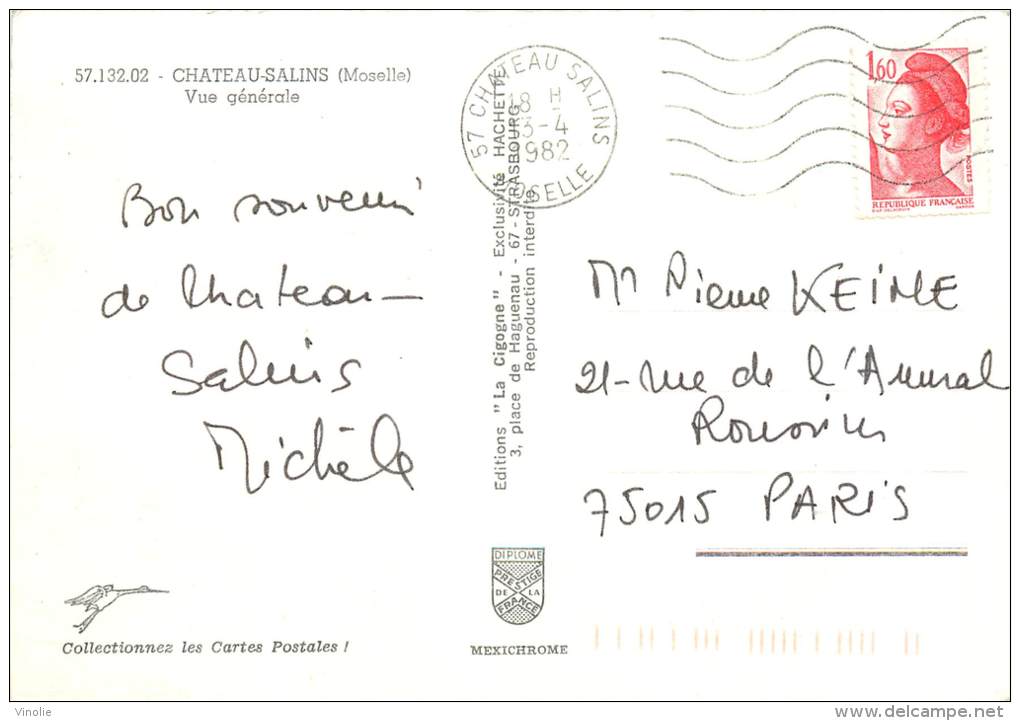 57.132.02 - CHATEAU-SALINS (Moselle)
Vue générale
Bon souvenir
de Chateau-
Salins
Michèle
Editions "La Cigogne" - Exclusivité HACHETTE
3, place de Haguenau - 67 - STRASBOURG
Reproduction interdite
57 CHATEAU SALINS
18 H
3-4
1982
MOSELLE
1,60
POSTES
REPUBLIQUE FRANÇAISE
Mr Pierre KEIME
21 - rue de l'Amiral
Roussin
75015 PARIS
DIPLOME
PRESTIGE
DE LA
FRANCE
Collectionnez les Cartes Postales !
MEXICHROME
Vinolie
www.delcampe.net